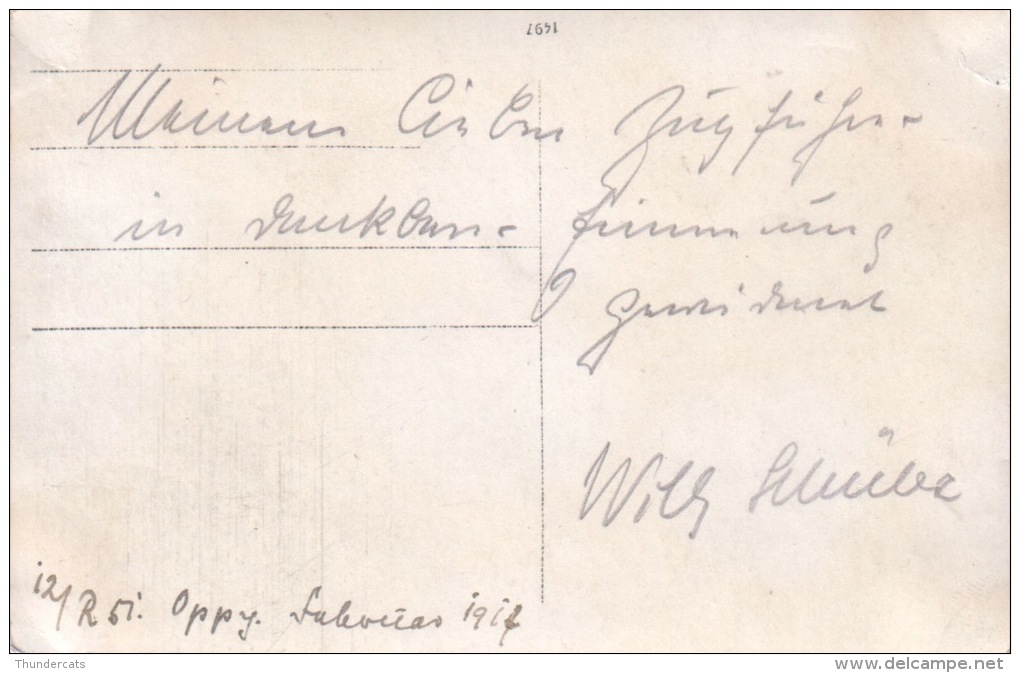 1697
Meinem lieben Zugführer
in dankbarer Erinnerung
gewidmet
Willy
12/R 51. Oppy. Februar 1917
Thundercats
www.delcampe.net